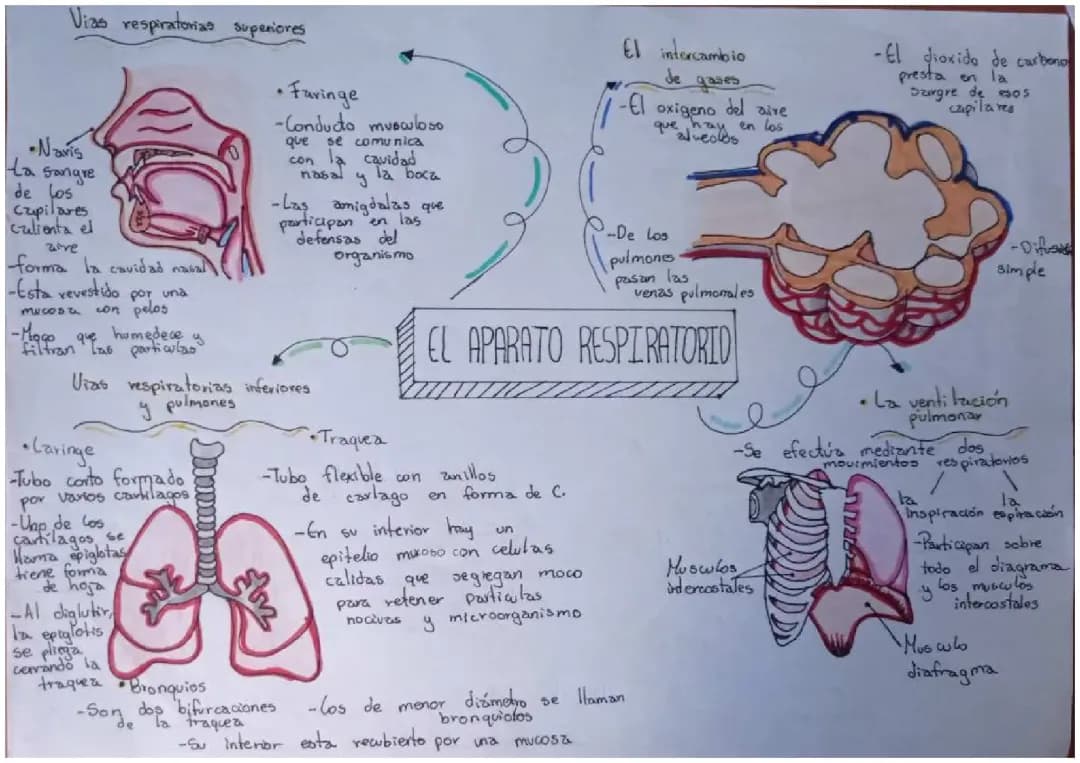 Vias respiratorias superiores
• Faringe
-Conducto musculoso
que se comunica
con la cavidad
nasal y la boca
-Las amigdalas que
participan en las
defensas del
organismo
• Naris
-La sangre
de los
capilares
calienta el
aire
-forma la cavidad nasal
-Esta revestido por una
mucosa con pelos
-Moco que humedece y
filtran las particulas
El intercambio
de gases
-El oxigeno del aire
que hay en los
alveolos
-El dioxido de carbono
presta en la
sangre de esos
capilares
-De los
pulmones
pasan las
venas pulmonales
-Difusion
simple
EL APARATO RESPIRATORIO
Vias respiratorias inferiores
y pulmones
• Laringe
-Tubo corto formado
por varios cartilagos
-Uno de los
cartilagos se
llama epiglotas
tiene forma
de hoja
-Al diglutir,
la epiglotis
se pliega
cerrando la
traquea
• Traquea
-Tubo flexible con anillos
de carlago en forma de C.
-En su interior hay un
epitelio mucoso con celulas
calidas que segregan moco
para retener particulas
nocivas y microorganismo
• Bronquios
-Son dos bifurcaciones
de la traquea
-Los de menor diámetro se llaman
bronquiolos
-Su interior esta recubierto por una mucosa
• La ventilación
pulmonar
-Se efectúa mediante dos
movimientos respiratorios
la
inspiración
la
espiración
-Participan sobre
todo el diagrama
y los musculos
intercostales
Musculos
intercostales
Musculo
diafragma